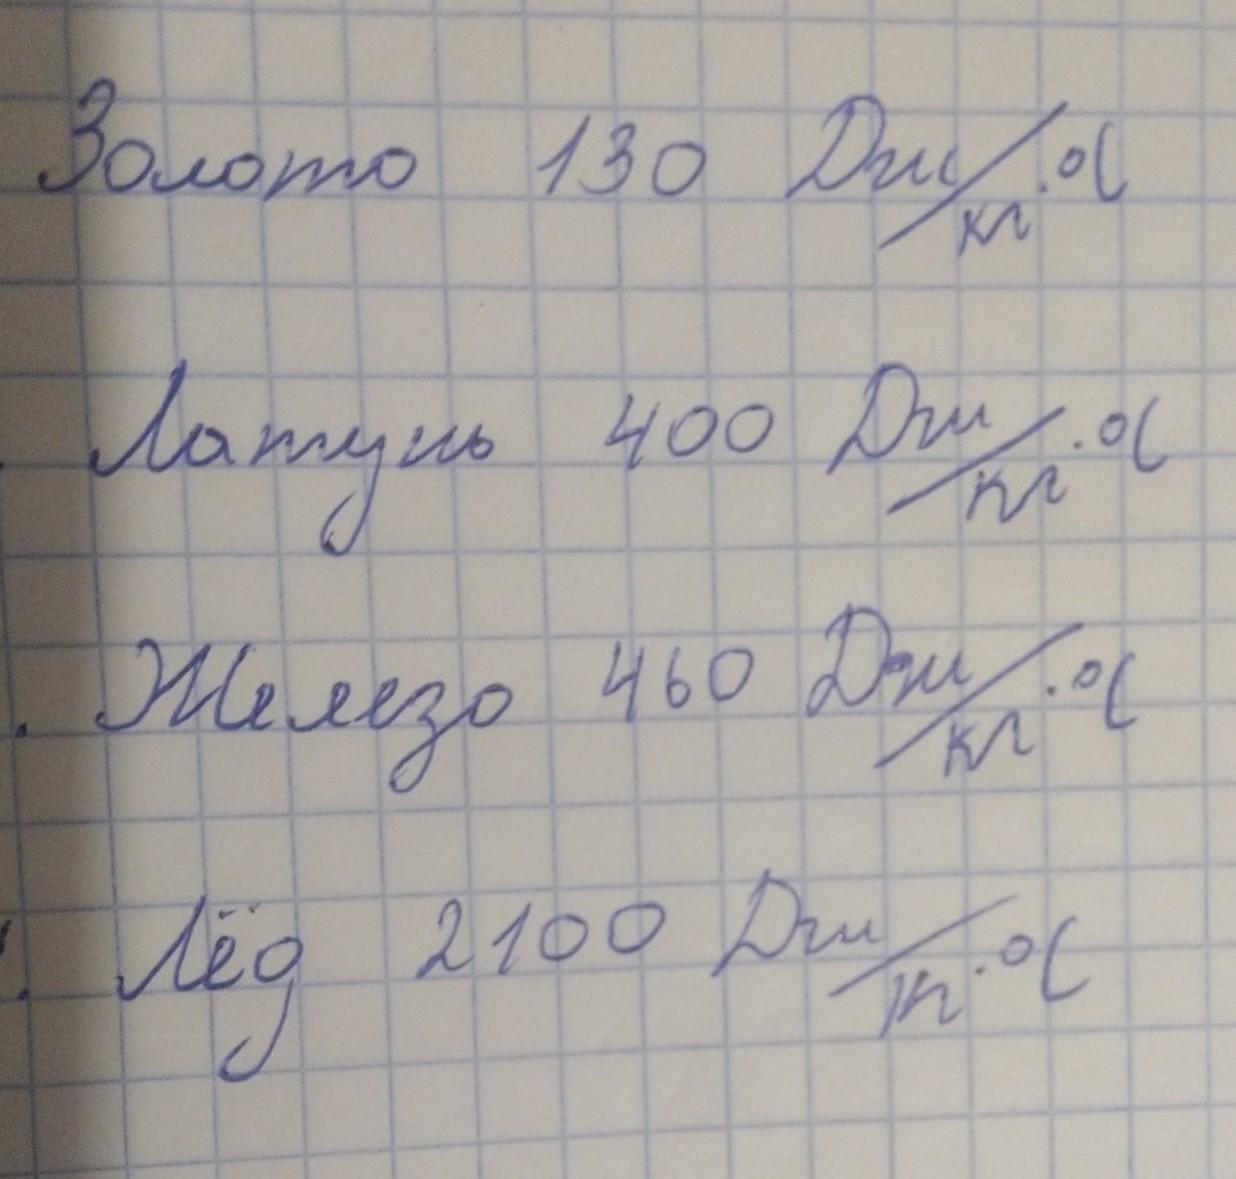 Золото 130 Дж/кг·°C
Латунь 400 Дж/кг·°C
. Железо 460 Дж/кг·°C
. Лёд 2100 Дж/кг·°C